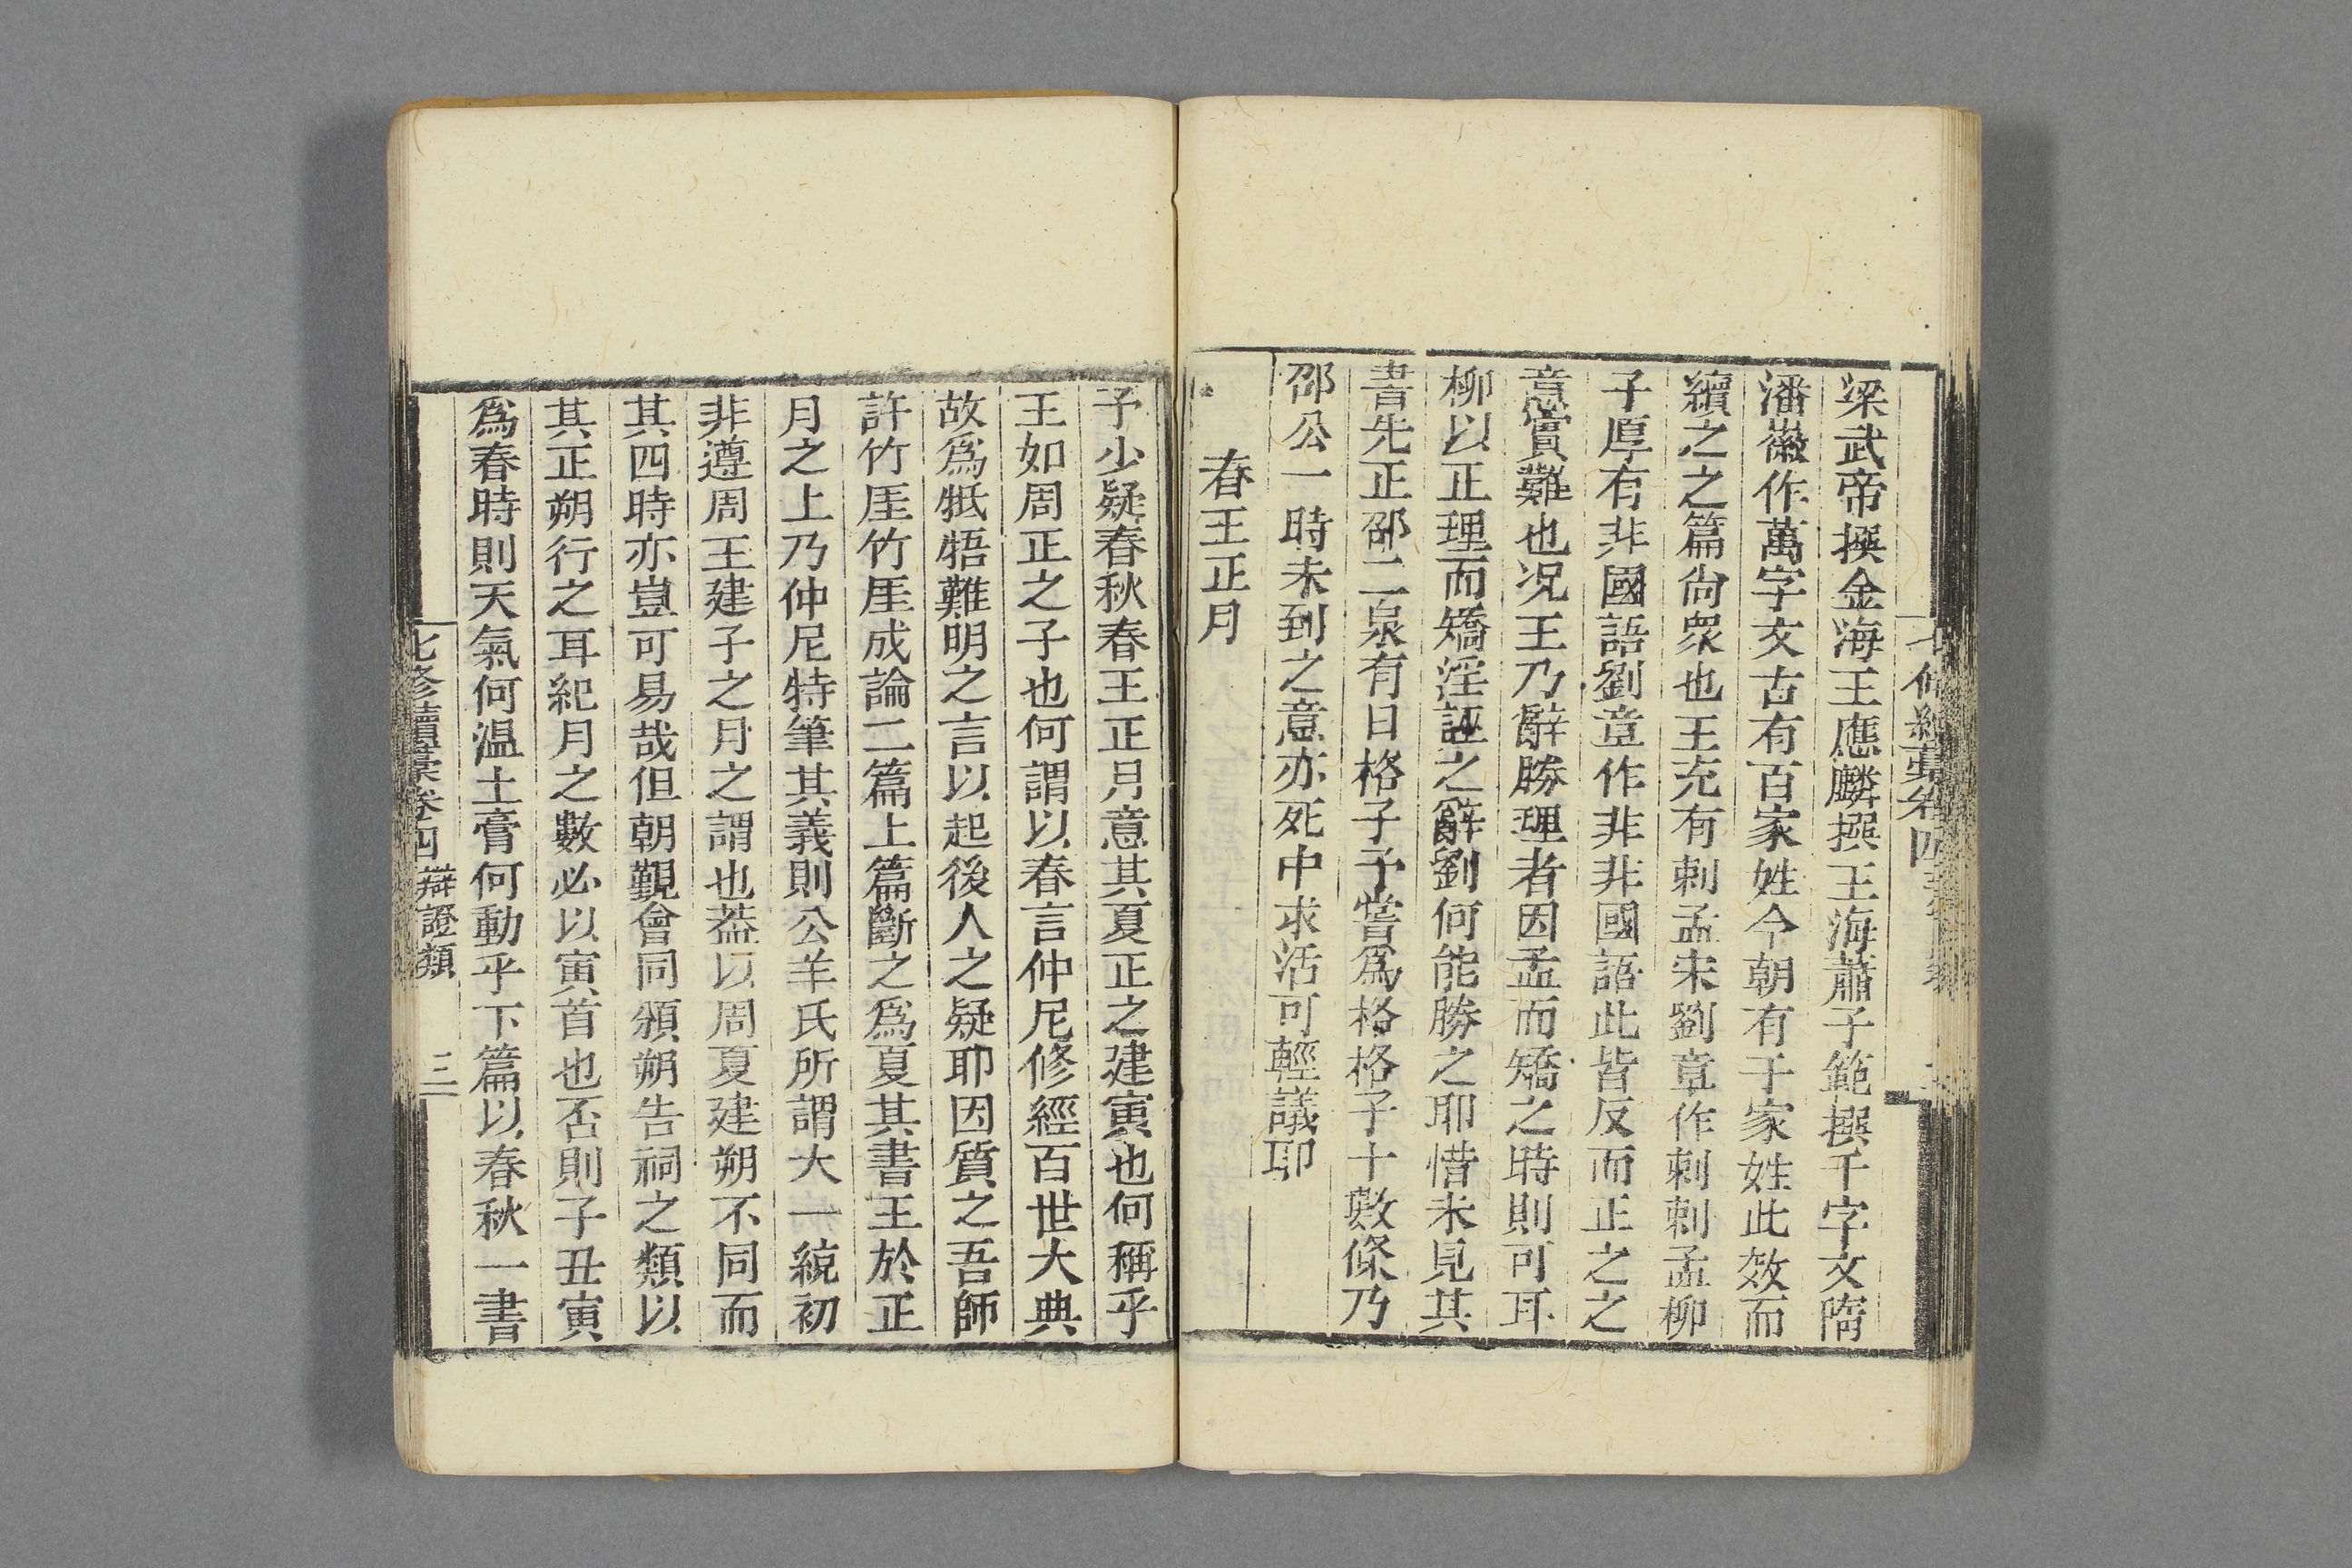 梁武帝撰金海王應麟撰玉海蕭子範撰千字文隋
潘徽作萬字文古有百家姓今朝有千家姓此效而
續之之篇尚衆也王充有刺孟宋劉章作刺刺孟柳
子厚有非國語劉章作非非國語此皆反而正之之
意實難也况王乃辭勝理者因孟而矯之時則可耳
柳以正理而矯淫誣之辭劉何能勝之耶惜未見其
書先正邵二泉有日格子予嘗爲格格子十數條乃
邵公一時未到之意亦死中求活可輕議耶
春王正月
予少疑春秋春王正月意其夏正之建寅也何稱乎
王如周正之子也何謂以春言仲尼修經百世大典
故爲牴牾難明之言以起後人之疑耶因質之吾師
許竹厓竹厓成論二篇上篇斷之爲夏其書王於正
月之上乃仲尼特筆其義則公羊氏所謂大一統初
非遵周王建子之月之謂也葢以周夏建朔不同而
其四時亦豈可易哉但朝覲會同頒朔告祠之類以
其正朔行之耳紀月之數必以寅首也否則子丑寅
爲春時則天氣何温土膏何動乎下篇以春秋一書
七修續藁卷四 辯證類 三